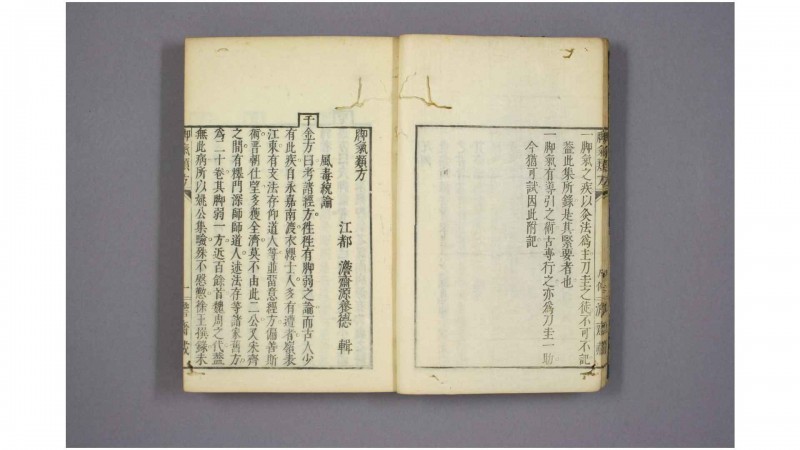 一脚氣之疾以灸法爲主刀圭之徒不可不記
蓋此集所錄是其緊要者也
一脚氣有導引之術古專行之亦爲刀圭一助
今猶可試因此附記
脚氣類方
脚氣類方
江都 源養德 輯
風毒統論
千金方曰考諸經方往往有脚弱之論而古人少
有此疾自永嘉南渡衣纓士人多有遭者嶺表
江東有支法存仰道人等並留意經方偏善斯
術晉朝仕望多獲全濟莫不由此二公又宋齊
之間有釋門深師師道人述法存等諸家舊方
爲三十卷其脚弱一方近百餘首魏周之代蓋
無此病所以姚公集驗殊不慇懃徐王撰錄未
脚氣類方
一